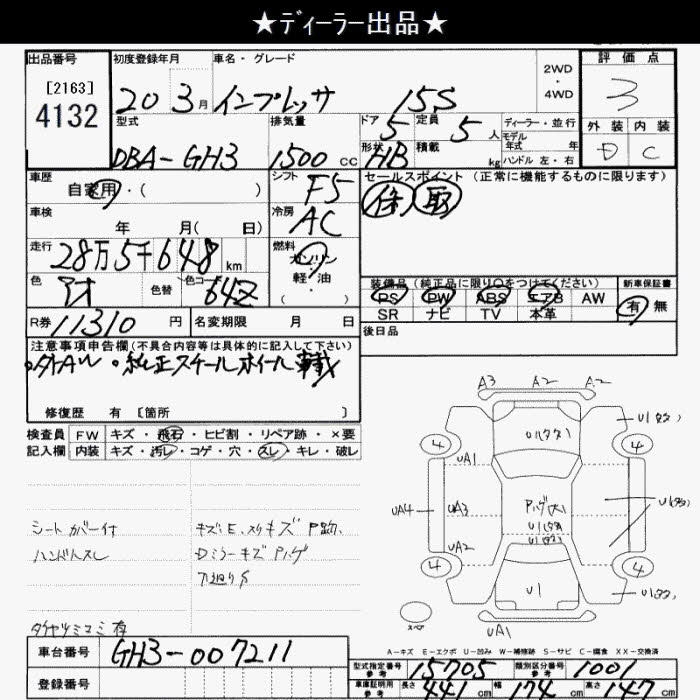 ★ディーラー出品★
出品番号
[2163]
4132
初度登録年月
20 3月
車名・グレード
インプレッサ 15S
2WD
・
4WD
評価点
3
外装 内装
D C
型式
DBA-GH3
排気量
1500 cc
ドア 5
定員 5 人
形状 HB
積載 kg
ディーラー・並行
モデル
年式 年
ハンドル 左・右
車歴
自家用・( )
シフト F5
セールスポイント(正常に機能するものに限ります)
保 取
車検
年 月( 日)
冷房 AC
走行
28万5千648 km
燃料
ガソリン
軽・油
( ・ )
色 アオ
色替
色コード 64Z
装備品(純正品に限り○をつけてください)
PS PW ABS エアB AW
SR ナビ TV 本革
新車保証書
有 無
R券 11310 円
名変期限 月 日
後日品
注意事項申告欄(不具合内容等は具体的に記入して下さい)
・外AW ・純正スチールホイール 載
修復歴 有 [箇所 ]
検査員 FW キズ・飛石・ヒビ割・リペア跡・×要
記入欄 内装 キズ・汚レ・コゲ・穴・スレ・キレ・破レ
シートカバー付
ハンドルスレ
キズ・E、スリキズ P跡、
Dミラーキズ ハゲ
下廻りS
ダイヤツミコミ 存
A3 A2 A2
U1(タタ)
4 4
U1(タタ)
UA1
UA4 UA3
ハゲ(大)
U1(タタ)
U1(タタ)
U1(タタ)
UA2
4 4
U1
U1(タタ)
スペア
UA1
A-キズ E-エクボ U-凹み W-補修跡 S-サビ C-腐食 XX-交換済
車台番号 GH3-007211
登録番号
型式指定番号 参考 15705
類別区分番号 参考 1001
車庫証明用 参考 長さ 441 cm 幅 174 cm 高さ 147 cm